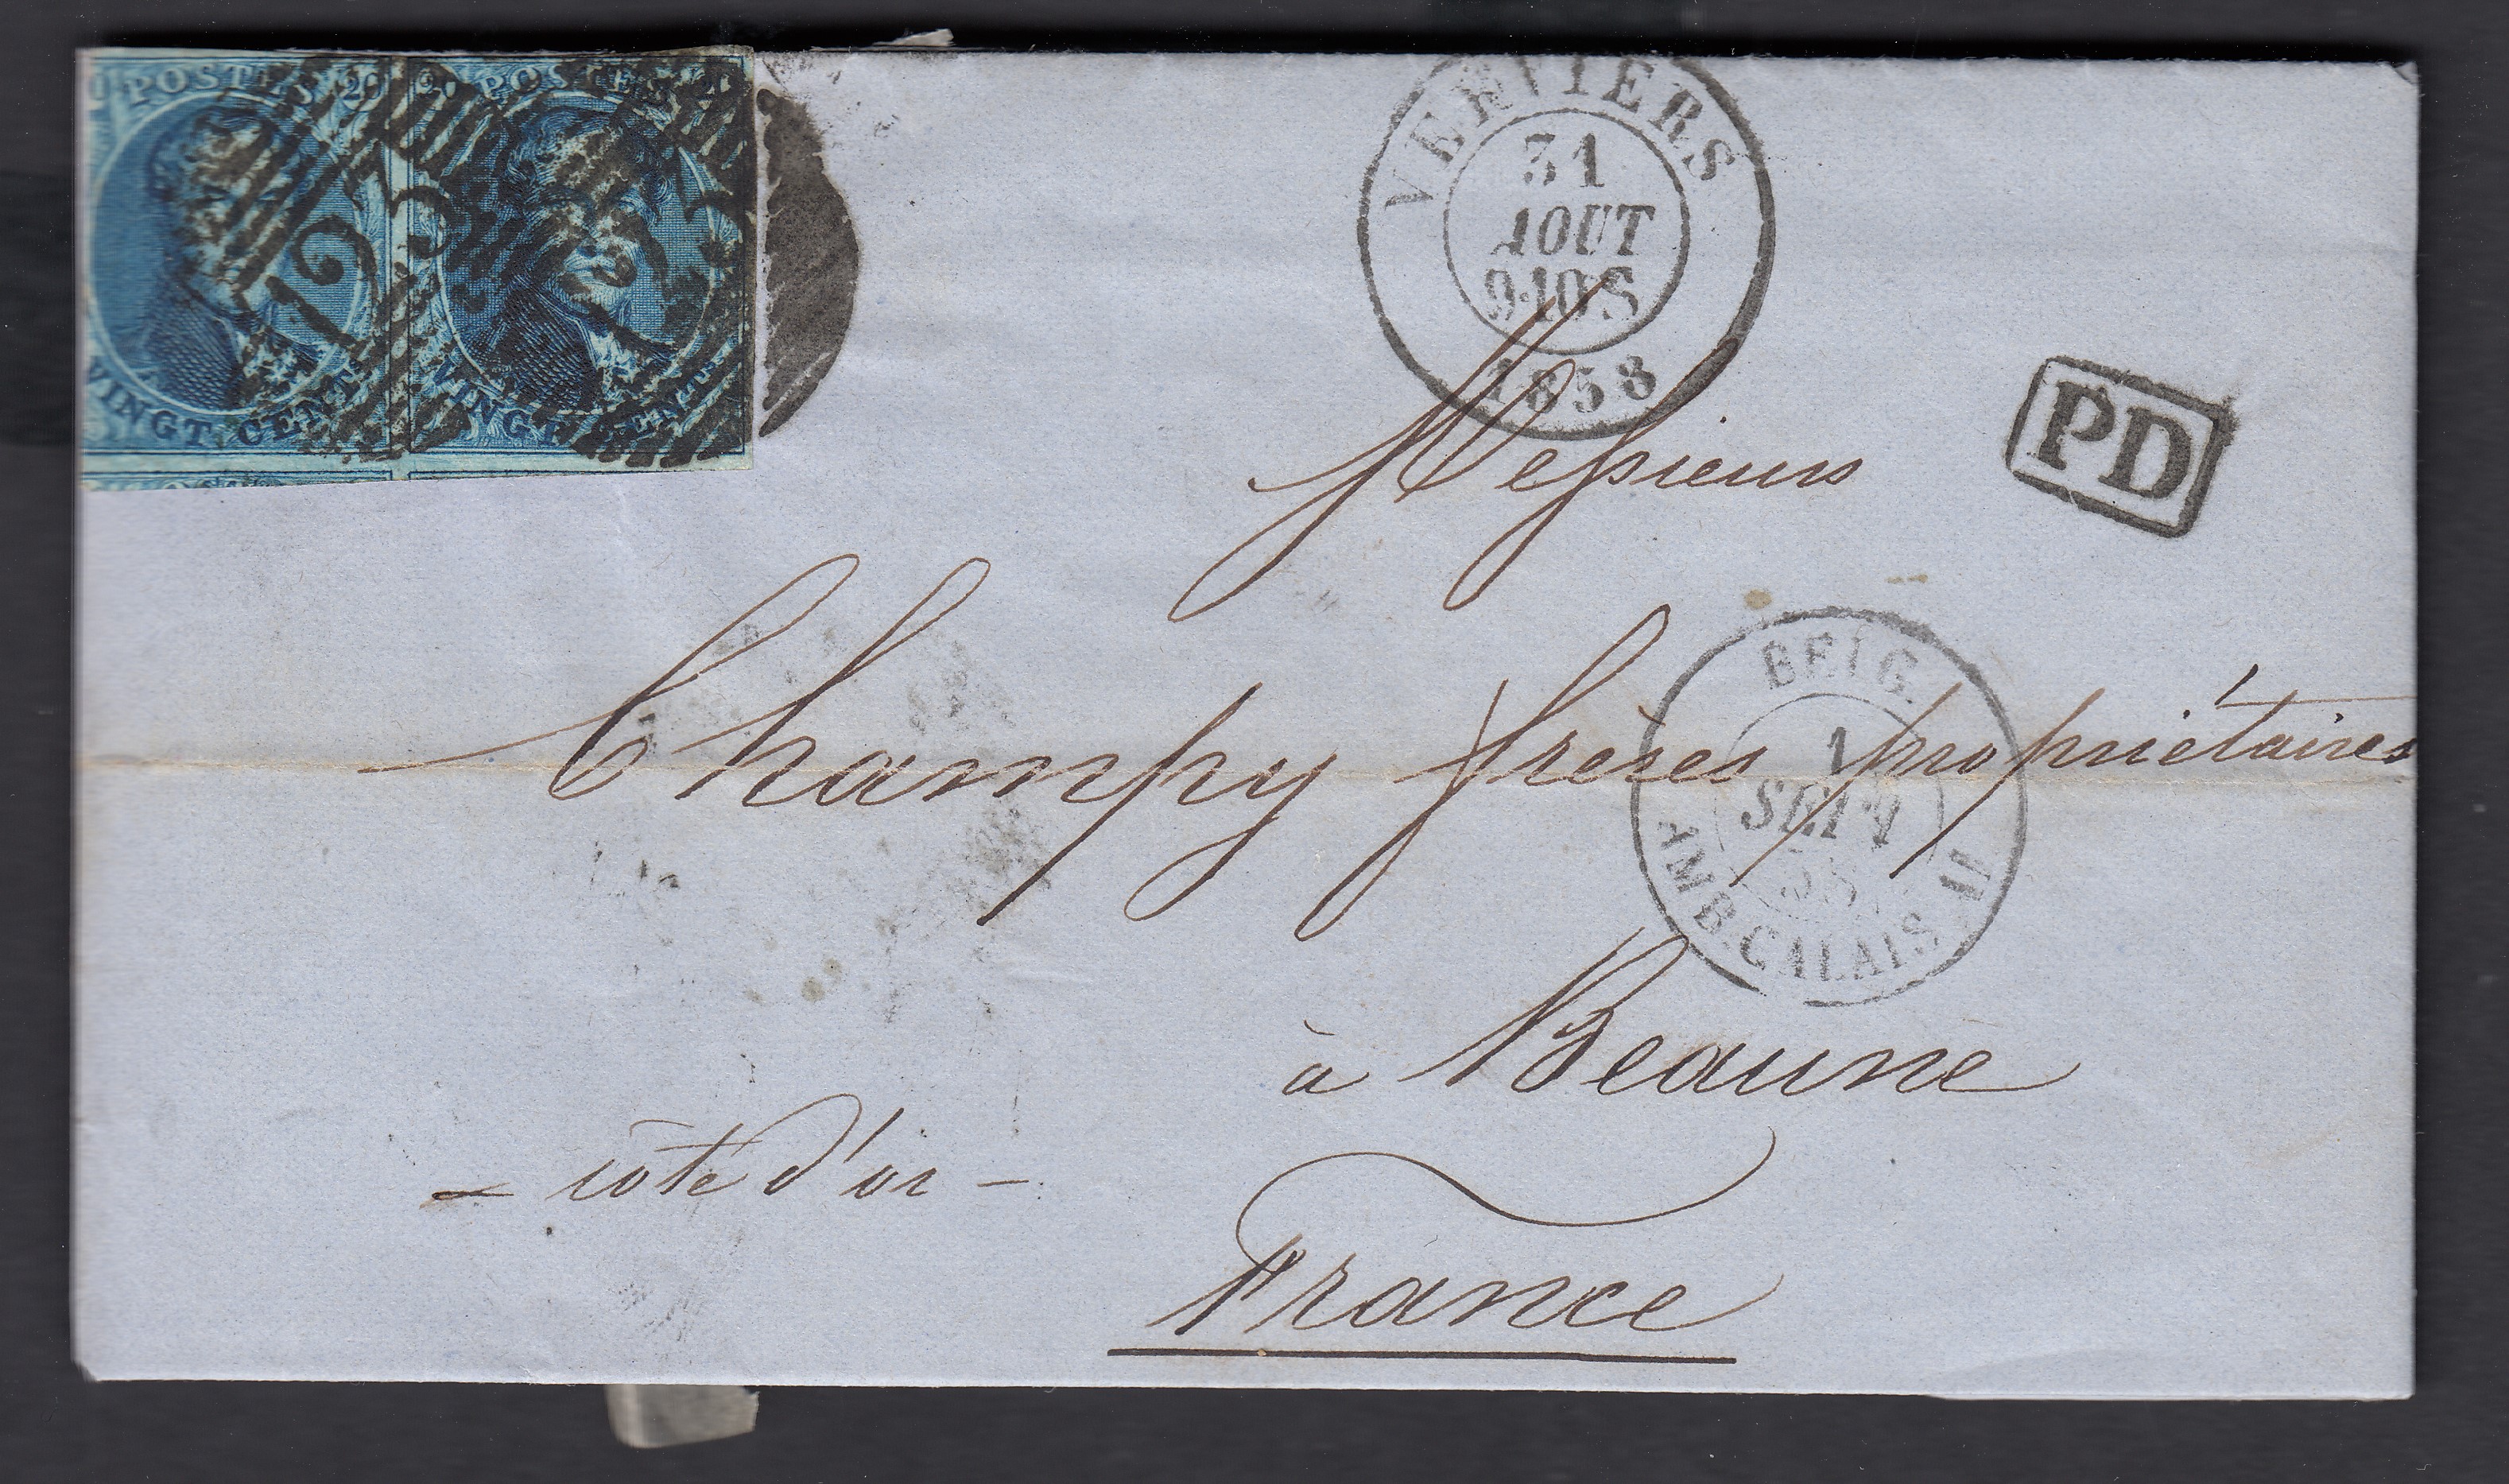 POSTES 20
20 POSTES 20
123
VINGT CENTS
VINGT CENTS
VERVIERS
31
AOUT
9-10S
1858
PD
Messieurs
Champy frères propriétaires
BELG.
1
SEPT
58
AMB. CALAIS. II
à Beaune
- côte d'or -
France